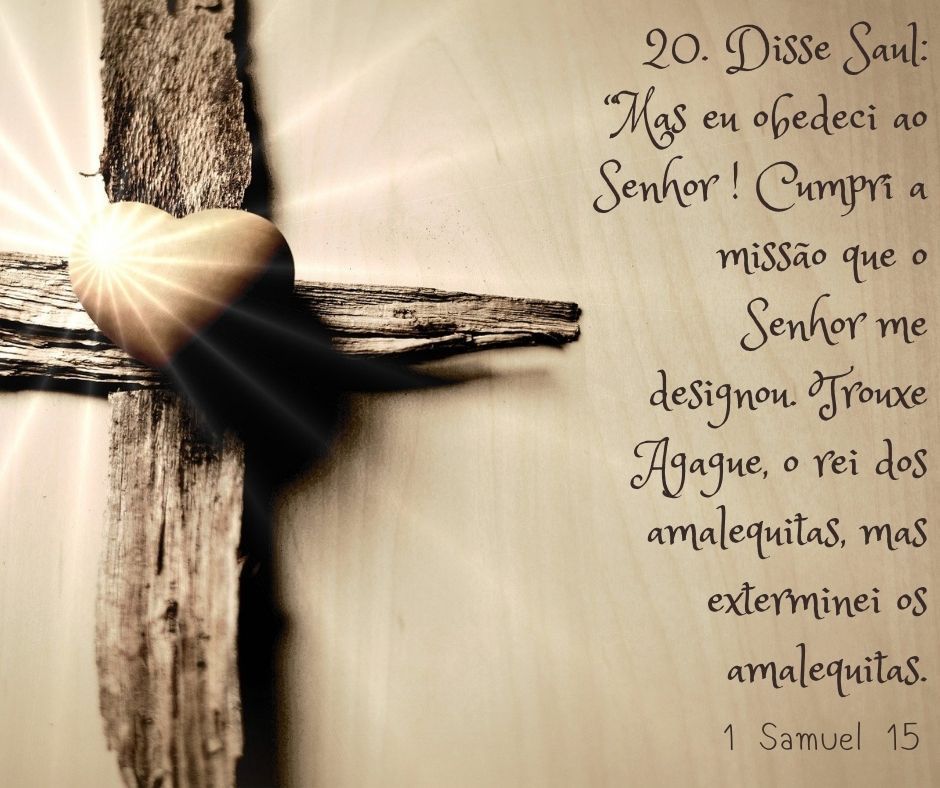 20. Disse Saul:
“Mas eu obedeci ao
Senhor ! Cumpri a
missão que o
Senhor me
designou. Trouxe
Agague, o rei dos
amalequitas, mas
exterminei os
amalequitas.
1 Samuel 15